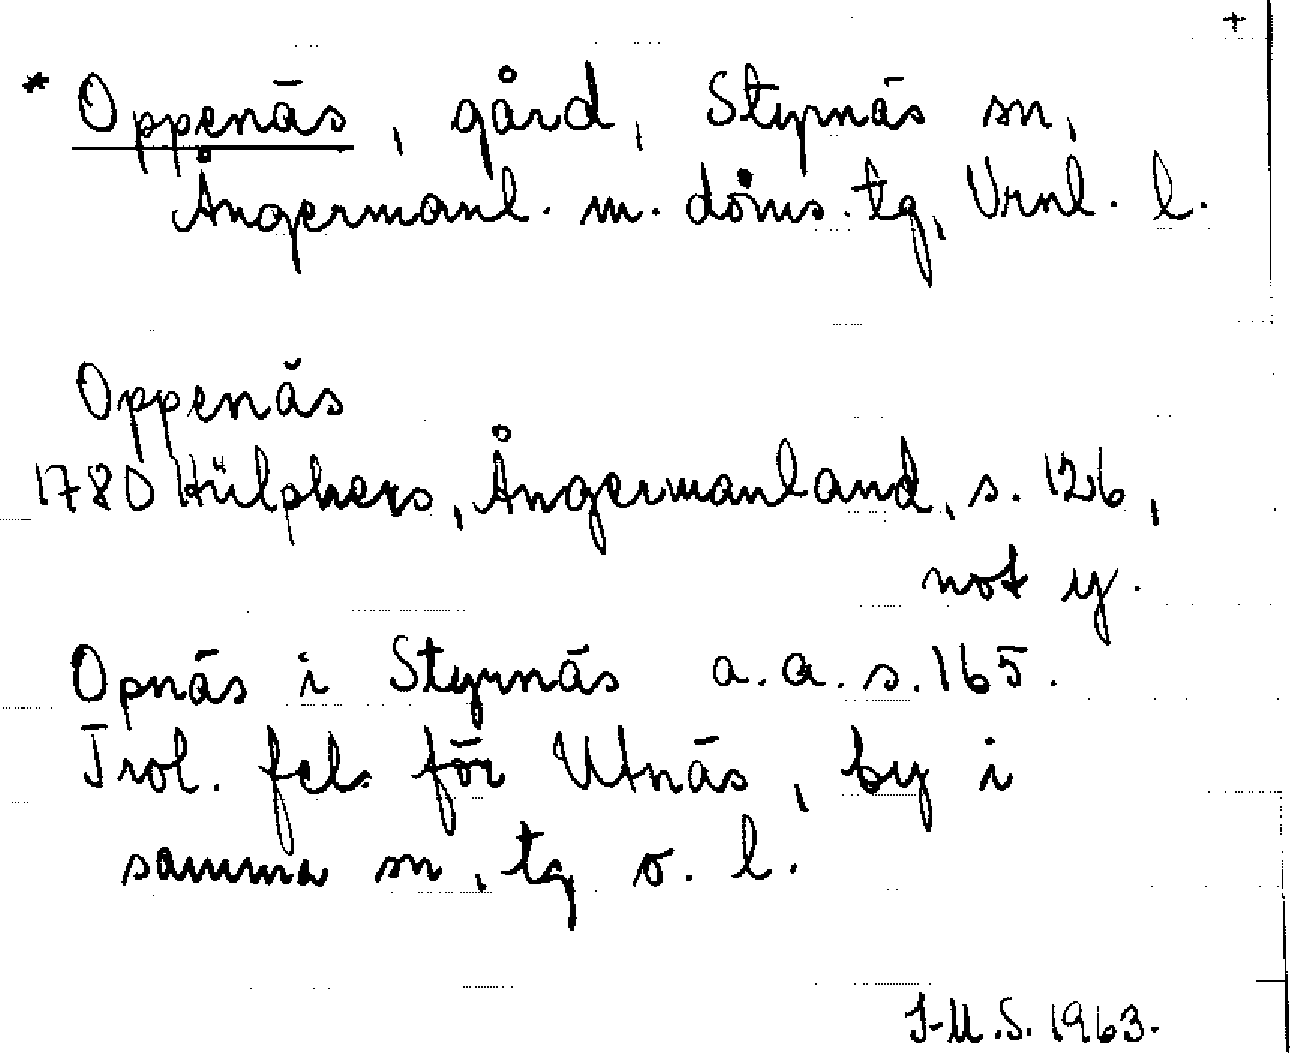 +
* Oppenäs, gård, Styrnäs sn,
Ångermanl. m. doms. tg, Vrnl. l.
Oppenäs
1780 Hülphers, Ångermanland, s. 126,
not y.
Opnäs i Styrnäs a.a. s. 165.
Trol. fel. för Utnäs, by i
samma sn, tg o. l.
I-M.S. 1963.